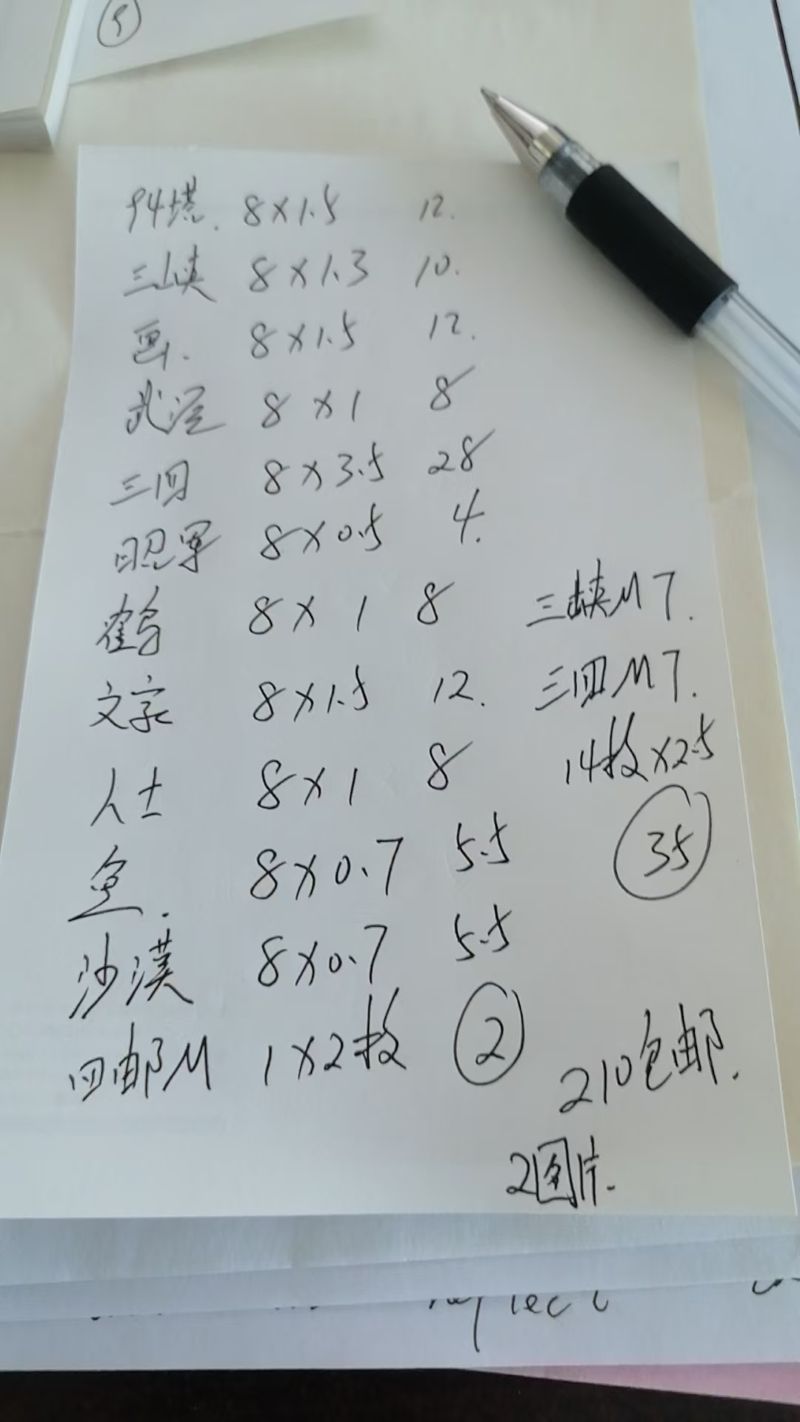 5
94塔. 8×1.5 12.
三峡 8×1.3 10.
画. 8×1.5 12.
武淫 8×1 8
三回 8×3.5 28
昭君 8×0.5 4.
鹤 8×1 8
三峡M7.
文字 8×1.5 12.
三回M7.
人士 8×1 8
14枚×2.5
鱼. 8×0.7 5.5
35
沙漠 8×0.7 5.5
回邮M 1×2枚 2
210包邮.
2图片.
reflect